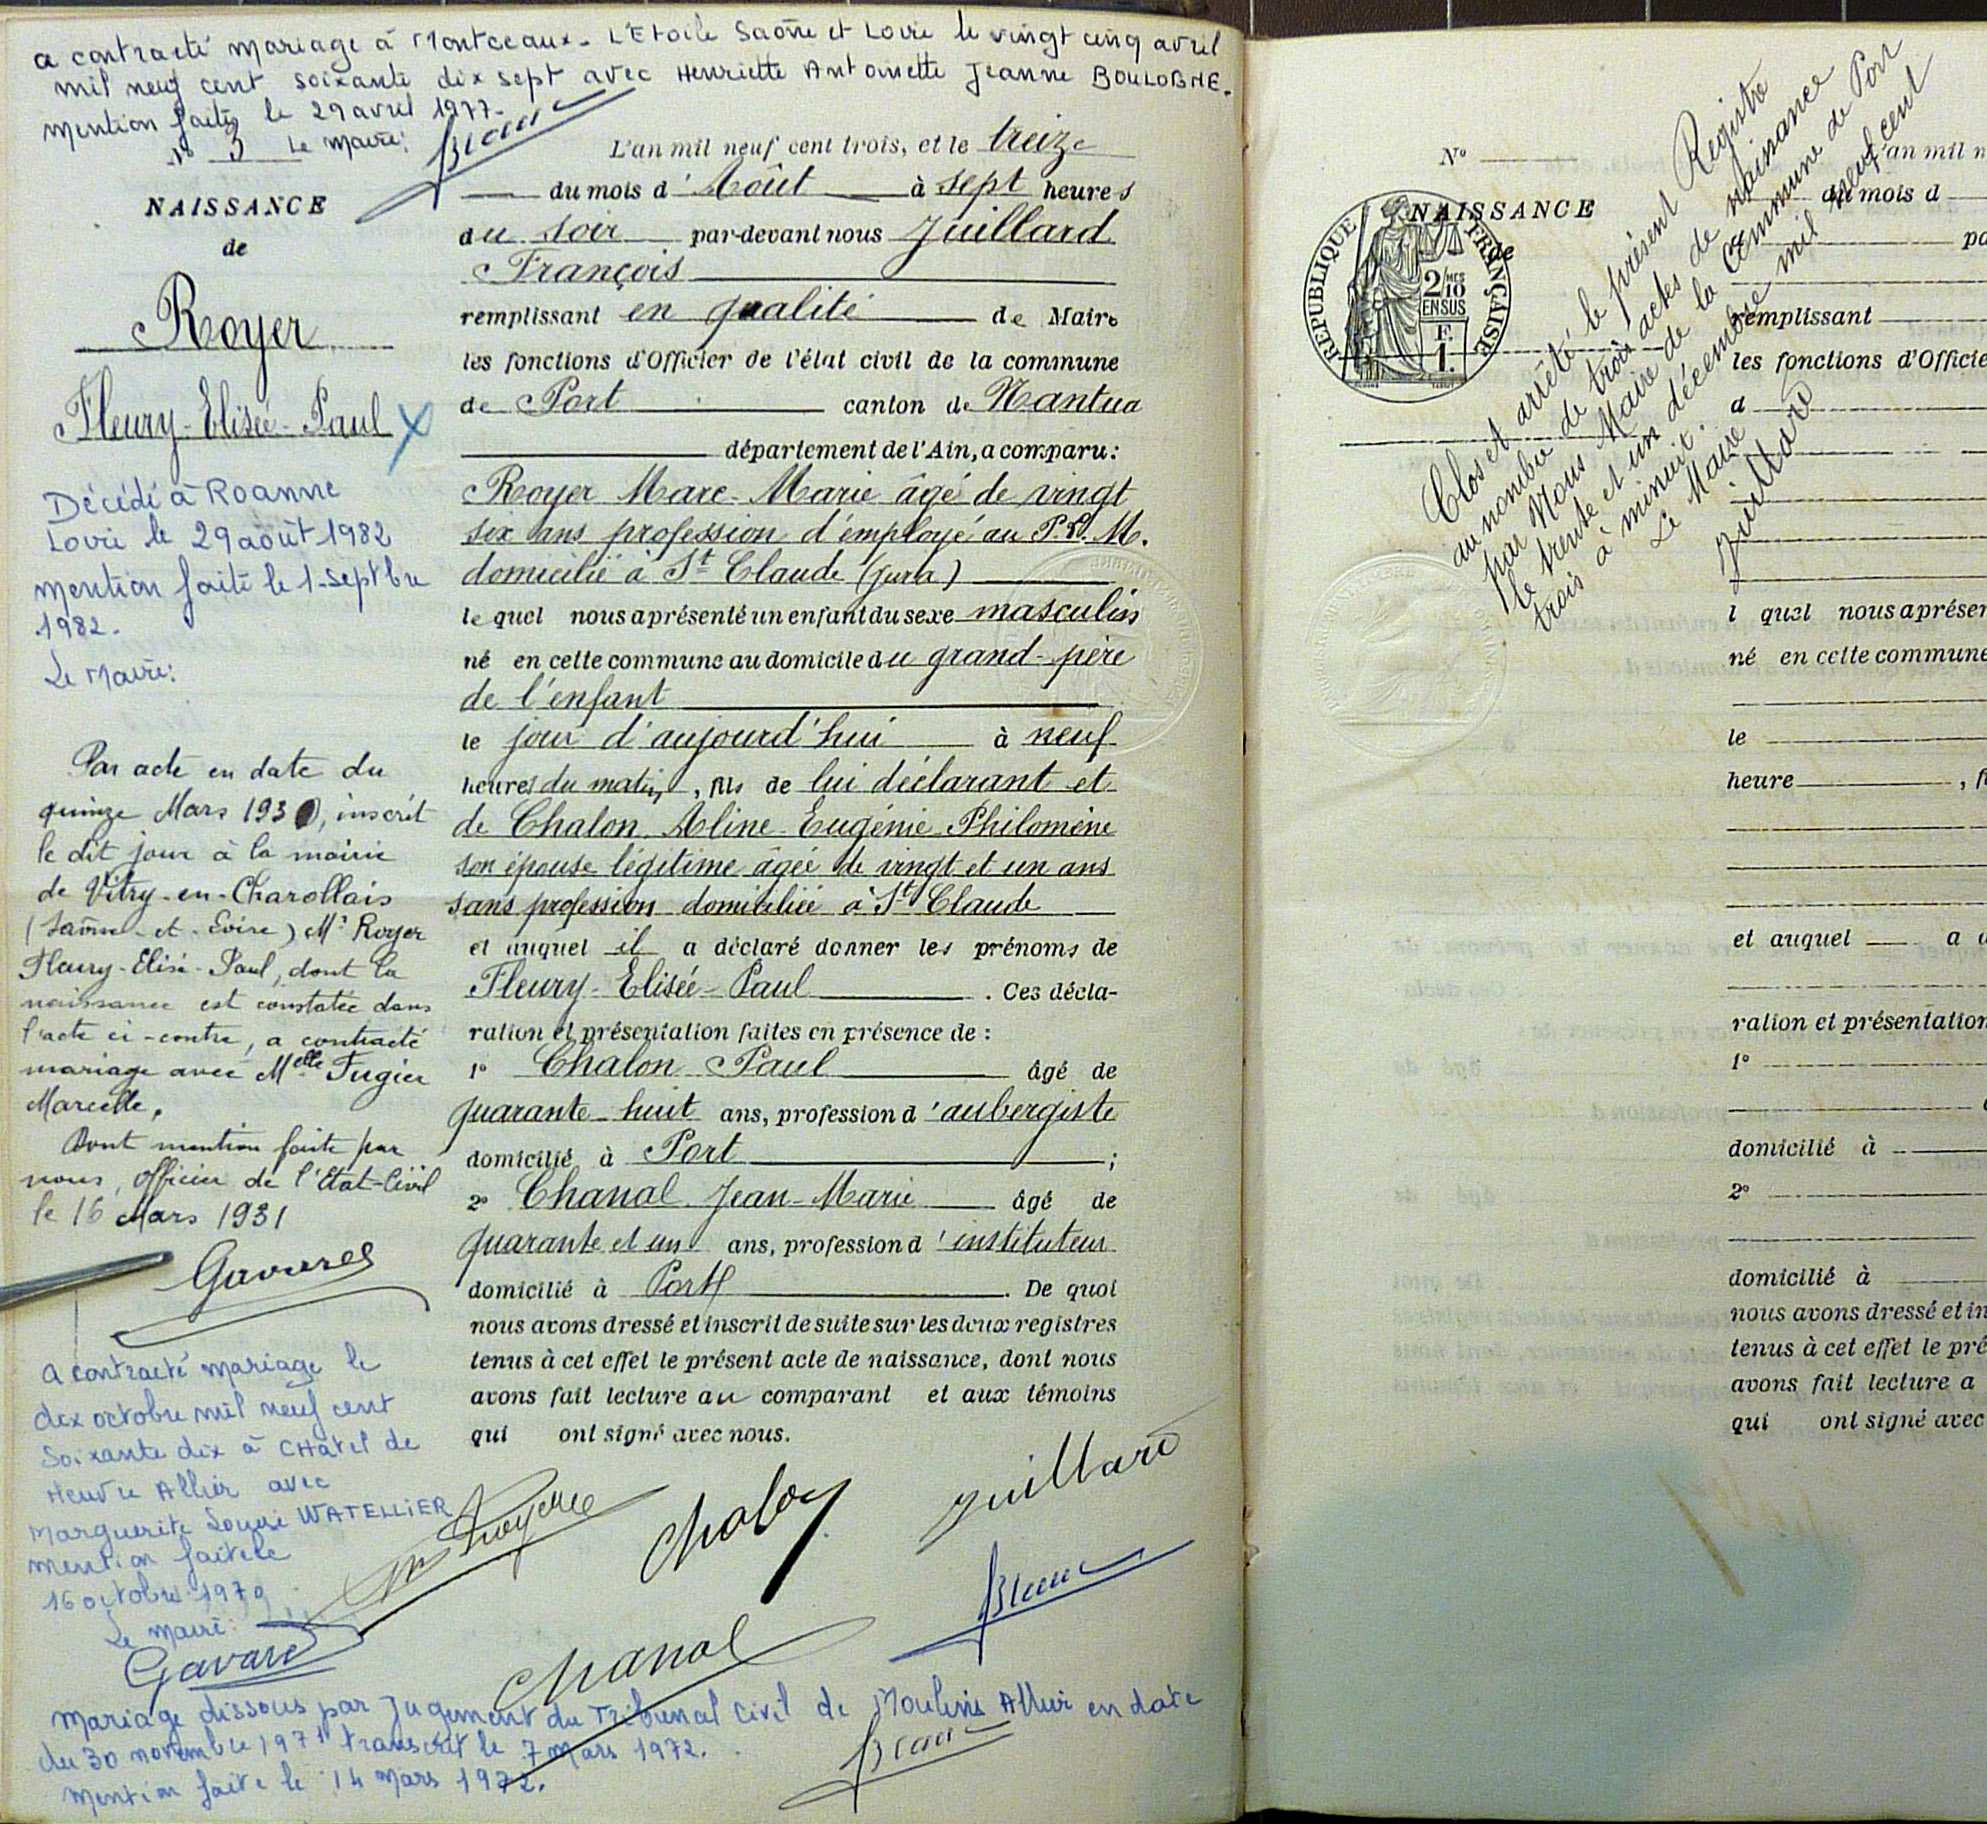 a contracté mariage à Montceaux-L'Etoile Saône et Loire le vingt cinq avril
mil neuf cent soixante dix sept avec Henriette Antoinette Jeanne BOULOGNE.
mention faite le 29 avril 1977.
N° 3 Le Maire:
NAISSANCE
de
Royer
Fleury-Elisée-Paul
Décédé à Roanne
Loire le 29 août 1982
mention faite le 1-septbre
1982.
Le Maire:
Par acte en date du
quinze Mars 193, inscrit
le dit jour à la mairie
de Vitry-en-Charollais
(Saône-et-Loire) Mr Royer
Fleury-Elisé-Paul, dont la
naissance est constatée dans
l'acte ci-contre, a contracté
mariage avec Melle Fugier
Marcelle.
Dont mention faite par
nous, Officier de l'Etat-Civil
le 16 Mars 1931
a contracté mariage le
dix octobre mil neuf cent
soixante dix à CHatel de
Neuvre Allier avec
Marguerite Louise WATELLIER
mention faite le
16 octobre 1970
Le Maire:
L'an mil neuf cent trois, et le treize
du mois d'Août à sept heures
du soir par-devant nous Juillard
François
remplissant en qualité de Maire
les fonctions d'Officier de l'état civil de la commune
de Port canton de Nantua
département de l'Ain, a comparu:
Royer Marc-Marie âgé de vingt
six ans profession d'employé au P.L.M.
domicilié à St Claude (Jura)
lequel nous a présenté un enfant du sexe masculin
né en cette commune au domicile du grand-père
de l'enfant
le jour d'aujourd'hui à neuf
heures du matin, fils de lui déclarant et
de Chalon Aline Eugénie Philomène
son épouse légitime âgée de vingt et un ans
sans profession domiciliée à St Claude
et auquel il a déclaré donner les prénoms de
Fleury-Elisée-Paul. Ces décla-
ration et présentation faites en présence de:
1° Chalon Paul âgé de
quarante-huit ans, profession d'aubergiste
domicilié à Port;
2° Chanal Jean-Marie âgé de
quarante et un ans, profession d'instituteur
domicilié à Port. De quoi
nous avons dressé et inscrit de suite sur les deux registres
tenus à cet effet le présent acte de naissance, dont nous
avons fait lecture au comparant et aux témoins
qui ont signé avec nous.
Chalon
Juillard
Chanal
Mariage dissous par Jugement du Tribunal Civil de Moulins Allier en date
du 30 novembre 1971 transcrit le 7 mars 1972.
Mention faite le 14 Mars 1972.
N°
NAISSANCE
de
REPUBLIQUE FRANÇAISE
2/10 MES
EN SUS
F.
1.
Clos et arrêté le présent Registre
au nombre de trois actes de naissance
par Nous Maire de la Commune de Port
le trente et un décembre mil neuf cent
trois à minuit.
Le Maire
Juillard
L'an mil n
du mois d
pa
remplissant
les fonctions d'Officie
d
l quel nous a présen
né en cette commune
le
heure
et auquel a
ration et présentation
1°
domicilié à
2°
domicilié à
nous avons dressé et in
tenus à cet effet le pré
avons fait lecture a
qui ont signé avec